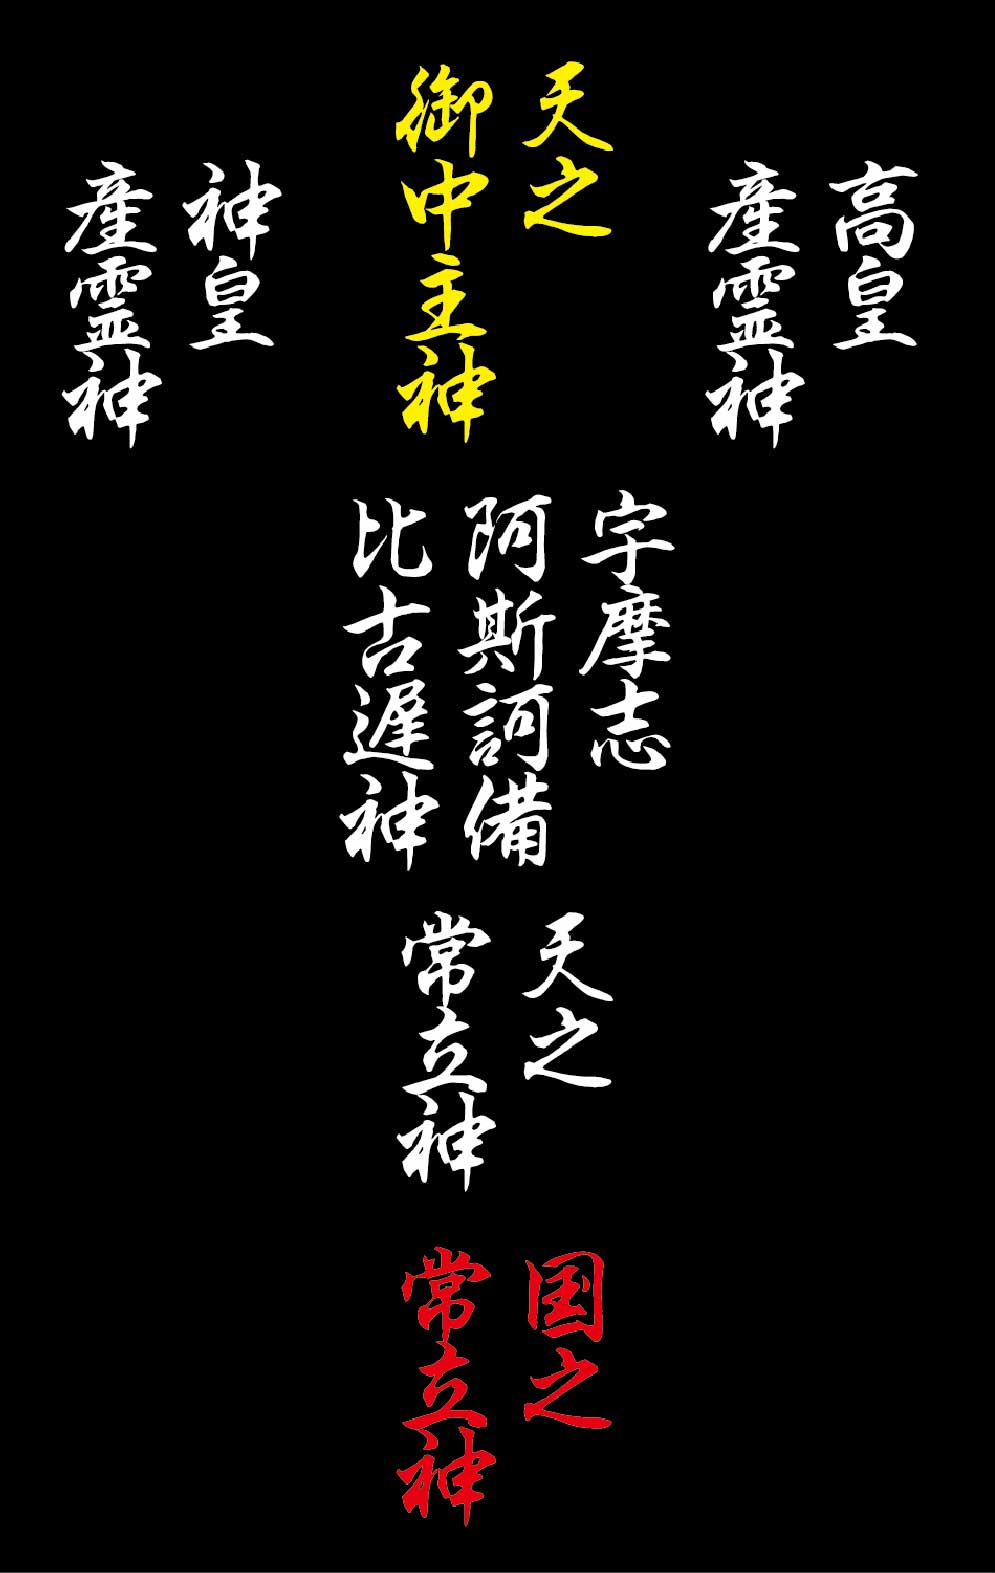 天之
御中主神
高皇
産霊神
神皇
産霊神
宇摩志
阿斯訶備
比古遅神
天之
常立神
国之
常立神